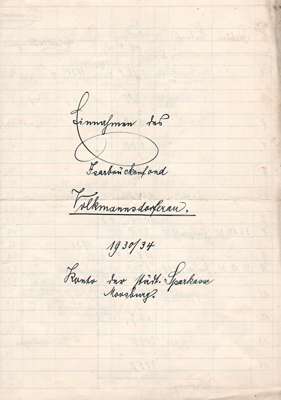 Einnahmen des
Isarbrückenfond
Volkmannsdorferau.
1930/34
Konto der städt. Sparkasse
Moosburg.